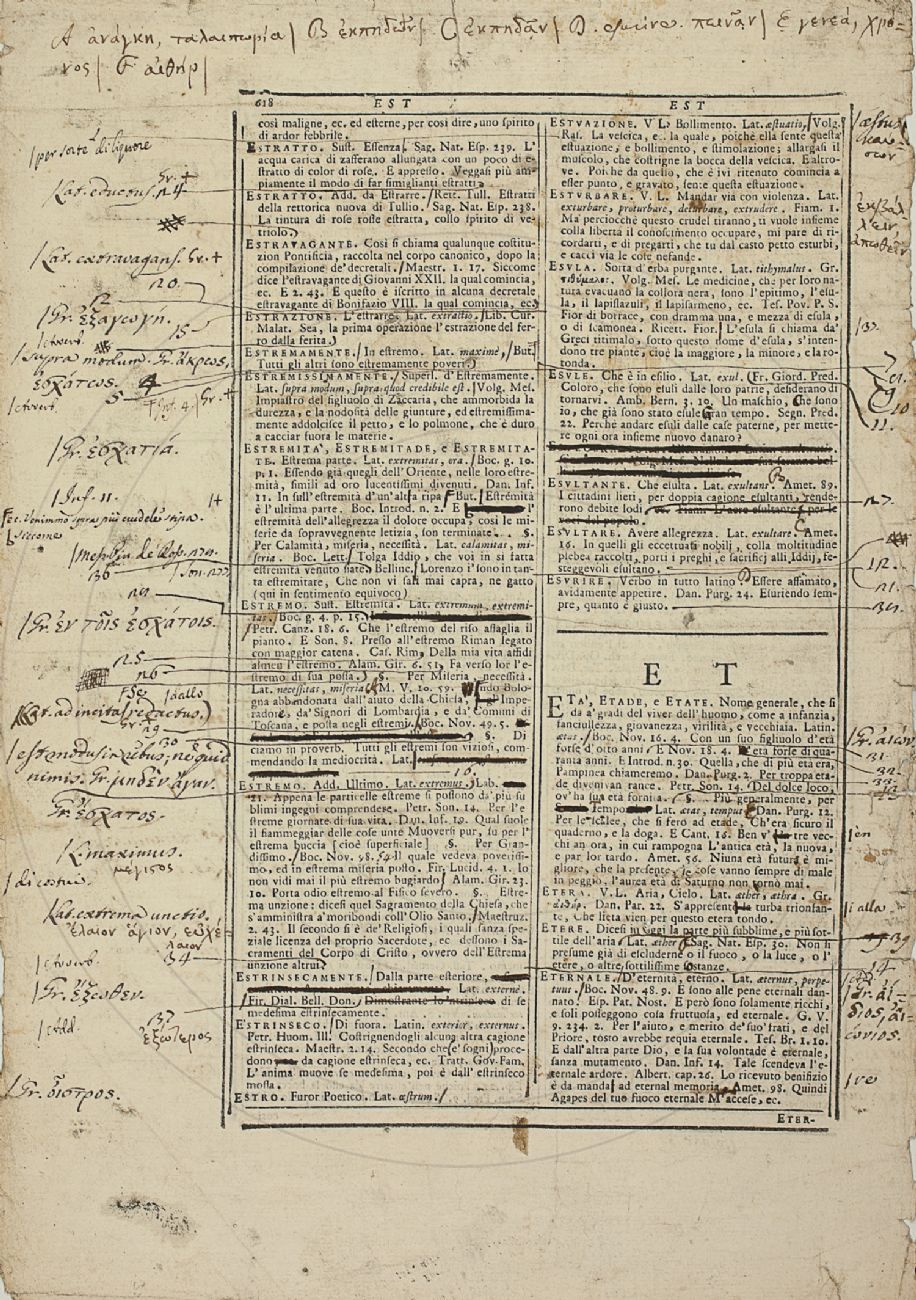 A ἀνάγκη, ταλαιπωρία| B ἐκπηδῶν| C ἐκπηδᾶν| D. πεινᾶν| E γενεά, χρό-
νος| F αἰθήρ|
618 EST EST
così maligne, ec. ed esterne, per così dire, uno spirito
di ardor febbrile.
ESTRATTO. Sust. Essenza. Sag. Nat. Esp. 239. L'
acqua carica di zafferano allungata con un poco di e-
stratto di color di rose. E appresso. Veggasi più am-
piamente il modo di far simiglianti estratti.
ESTRATTO. Add. da Estrarre. Rett. Tull. Estratti
della rettorica nuova di Tullio. Sag. Nat. Esp. 238.
La tintura di rose rosse estratta, collo spirito di ve-
triolo.
ESTRAVAGANTE. Così si chiama qualunque costitu-
zion Pontificia, raccolta nel corpo canonico, dopo la
compilazione de' decretali. Maestr. 1. 17. Siccome
dice l'estravagante di Giovanni XXII. la qual comincia,
ec. E 2. 43. E questo è iscritto in alcuna decretale
estravagante di Bonifazio VIII. la qual comincia, ec.
ESTRAZIONE. L'estrarre. Lat. extractio. Lib. Cur.
Malat. Sea, la prima operazione l'estrazione del fer-
ro dalla ferita.
ESTREMAMENTE. In estremo. Lat. maxime, But.
Tutti gli altri sono estremamente poveri.
ESTREMISSIMAMENTE. Superl. d'Estremamente.
Lat. supra modum, supra quod credibile est. Volg. Mes.
Impiastro del figliuolo di Zaccaria, che ammorbida la
durezza, e la nodosità delle giunture, ed estremissima-
mente addolcisce il petto, e lo polmone, che è duro
a cacciar fuora le materie.
ESTREMITA', ESTREMITADE, e ESTREMITA-
TE. Estrema parte. Lat. extremitas, ora. Boc. g. 10.
p. 1. Essendo già quegli dell'Oriente, nelle loro estre-
mità, simili ad oro lucentissimi divenuti. Dan. Inf.
11. In sull'estremità d'un'alta ripa. But. Estremità
è l'ultima parte. Boc. Introd. n. 2. E l'
estremità dell'allegrezza il dolore occupa, così le mi-
serie da sopravvegnente letizia, son terminate. §.
Per Calamità, miseria, necessità. Lat. calamitas, mi-
seria. Boc. Lett. Tolga Iddio, che voi in sì fatta
estremità venuto siate. Bellinc. Lorenzo i' sono in tan-
ta estremitate, Che non vi sali mai capra, ne gatto
(qui in sentimento equivoco)
ESTREMO. Sust. Estremità. Lat. extremum, extremi-
tas. Boc. g. 4. p. 15.
Petr. Canz. 18. 6. Che l'estremo del riso assaglia il
pianto. E Son. 8. Presso all'estremo Riman legato
con maggior catena. Cas. Rim. Della mia vita affidi
almen l'estremo. Alam. Gir. 6. 51. Fa verso lor l'e-
stremo di sua possa. §. Per Miseria, necessità.
Lat. necessitas, miseria. M. V. 10. 59. Bolo-
gna abbandonata dall'aiuto della Chiesa, Impe-
radore, da' Signori di Lombardia, e da' Comuni di
Toscana, e posta negli estremi. Boc. Nov. 49. 5.
§. Di
ciamo in proverb. Tutti gli estremi son viziosi, com-
mendando la mediocrità. Lat.
ESTREMO. Add. Ultimo. Lat. extremus. Lab.
21. Appena le particelle estreme si possono da' più su
blimi ingegni comprendere. Petr. Son. 14. Per l'e-
streme giornate di sua vita. Dan. Inf. 19. Qual suole
il fiammeggiar delle cose unte Muoversi pur, su per l'
estrema buccia [cioè superficiale] §. Per Gran-
dissimo. Boc. Nov. 98. 54. Il quale vedeva poverissi-
mo, ed in estrema miseria posto. Fir. Lucid. 4. 1. Io
non vidi mai il più estremo bugiardo. Alam. Gir. 23.
10. Porta odio estremo al Fisico severo. §. Estre-
ma unzione: dicesi quel Sagramento della Chiesa, che
s'amministra a' moribondi coll'Olio Santo. Maestruz.
2. 43. Il secondo si è de' Religiosi, i quali sanza spe-
ziale licenza del proprio Sacerdote, ec. dessono i Sa-
cramenti del Corpo di Cristo, ovvero dell'Estrema
unzione altrui.
ESTRINSECAMENTE. Dalla parte esteriore,
Lat. externè.
Fir. Dial. Bell. Don. Dimostrante lo'ntrinseco di se
medesima estrinsecamente.
ESTRINSECO. Di fuora. Latin. exterior, externus.
Petr. Huom. Ill. Costrignendogli alcuna altra cagione
estrinseca. Maestr. 2. 14. Secondo che e' sogni proce-
dono da cagione estrinseca, ec. Tratt. Gov. Fam.
L'anima muove se medesima, poi è dall'estrinseco
mossa.
ESTRO. Furor Poetico. Lat. œstrum.
ESTUAZIONE. V. L. Bollimento. Lat. æstuatio, Volg.
Ras. La vescica, ec. la quale, poichè ella sente questa
estuazione, e bollimento, e stimolazione; allargasi il
muscolo, che costrigne la bocca della vescica. E altro-
ve. Poichè da quello, che è ivi ritenuto comincia a
esser punto, e gravato, sente questa estuazione.
ESTURBARE. V. L. Mandar via con violenza. Lat.
exturbare, proturbare, deturbare, extrudere. Fiam. 1.
Ma perciocchè questo crudel tiranno, ti vuole insieme
colla libertà il conoscimento occupare, mi pare di ri-
cordarti, e di pregarti, che tu dal casto petto esturbi,
e cacci via le cose nefande.
ESULA. Sorta d'erba purgante. Lat. tithymalus. Gr.
τιθύμαλος. Volg. Mes. Le medicine, che per loro na-
tura evacuano la collora nera, sono l'epitimo, l'esu-
la, il lapislazuli, il lapisarmeno, ec. Tes. Pov. P. S.
Fior di borrace, con dramma una, e mezza di esula,
o di scamonea. Ricett. Fior. L'esula si chiama da'
Greci titimalo, sotto questo nome d'esula, s'inten-
dono tre piante, cioè la maggiore, la minore, e la ro-
tonda.
ESULE. Che è in esilio. Lat. exul. (Fr. Giord. Pred.
Coloro, che sono esuli dalle loro patrie, desiderano di
tornarvi. Amb. Bern. 3. 10. Un maschio, Che sono
io, che già sono stato esule Gran tempo. Segn. Pred.
22. Perchè andare esuli dalle case paterne, per mette-
re ogni ora insieme nuovo danaro?
ESULTANTE. Che esulta. Lat. exultans. Amet. 89.
I cittadini lieti, per doppia cagione esultanti, rende-
rono debite lodi ec. Fiam. L'aere esultante per le
voci del popolo.
ESULTARE. Avere allegrezza. Lat. exultare. Amet.
16. In quelli gli eccettuati nobili, colla moltitudine
plebea raccolti, porti i preghi, e sacrifici alli Iddij, fe-
steggevoli esultano.
ESURIRE. Verbo in tutto latino. Essere affamato,
avidamente appetire. Dan. Purg. 24. Esuriendo sem-
pre, quanto è giusto.
E T
ETA', ETADE, e ETATE. Nome generale, che si
dà a' gradi del viver dell'huomo, come a infanzia,
fanciullezza, giovanezza, virilità, e vecchiaia. Latin.
ætas. Boc. Nov. 16. 4. Con un suo figliuolo d'età
forse d'otto anni. E Nov. 18. 4. età forse di qua-
ranta anni. E Introd. n. 30. Quella, che di più età era,
Pampinea chiameremo. Dan. Purg. 2. Per troppa eta-
de divenivan rance. Petr. Son. 14. Del dolce loco,
ov' ha sua età fornita. §. Più generalmente, per
Tempo. Lat. ætas, tempus. Dan. Purg. 12.
Per le scalee, che si fero ad etade, Ch'era sicuro il
quaderno, e la doga. E Cant. 16. Ben v' tre vec-
chi an ora, in cui rampogna L'antica età, la nuova,
e par lor tardo. Amet. 56. Niuna età futura è mi-
gliore, che la presente, le cose vanno sempre di male
in peggio, l'aurea età di Saturno non tornò mai.
ETERA. V. L. Aria, Cielo. Lat. æther, æthra. Gr.
αἰθήρ. Dan. Par. 22. S'appresenti la turba trionfan-
te, Che lieta vien per questo etera tondo.
ETERE. Dicesi in oggi la parte più subblime, e più sot-
tile dell'aria. Lat. æther. Sag. Nat. Esp. 30. Non si
presume già di escluderne o il fuoco, o la luce, o l'
etere, o altre sottilissime sostanze.
ETERNALE. D'eternità, eterno. Lat. æternus, perpe-
tuus. Boc. Nov. 48. 9. E sono alle pene eternali dan-
nato. Esp. Pat. Nost. E però sono solamente ricchi,
e soli posseggono cosa fruttuosa, ed eternale. G. V.
9. 234. 2. Per l'aiuto, e merito de' suo' frati, e del
Priore, tosto avrebbe requia eternale. Tes. Br. 1. 10.
E dall'altra parte Dio, e la sua volontade è eternale,
sanza mutamento. Dan. Inf. 14. Tale scendeva l'e-
ternale ardore. Albert. cap. 26. Lo ricevuto benifizio
è da mandar ad eternal memoria. Amet. 98. Quindi
Agapes del tuo fuoco eternale M'accese, ec.
ETER-
|per sorte di liquore
Lat. eductus. 14
Lat. extravagans. Gr. +
20.
12
|Gr. ἐξαγωγή.
15
|supra modum. Gr. ἄκρως,
ἐσχάτως. 4
5
|Gr. ἐσχατιά.
| Inf. 11.
136
|Gr. ἐν τοῖς ἐσχάτοις.
25
26
Lat. ad incita (redactus.)
29
30
|est modus in rebus, ne quid
nimis. Gr. μηδὲν ἄγαν.
Gr. ἔσχατος.
|L. maximus.
μέγιστος
|di costui
Lat. extrema unctio.
ἔλαιον ἅγιον, εὐχέ-
λαιον
34
|Gr. ἔξωθεν.
37
|add. ἐξώτερος
|Gr. οἶστρος.
ἐκβάλ
λειν,
ἀπωθεῖν
9
10
11.
27.
12.
21.
31.
32.
|alla
39
14
|Gr. ἀΐ-
διος, αἰ-
ώνιος.
|ve